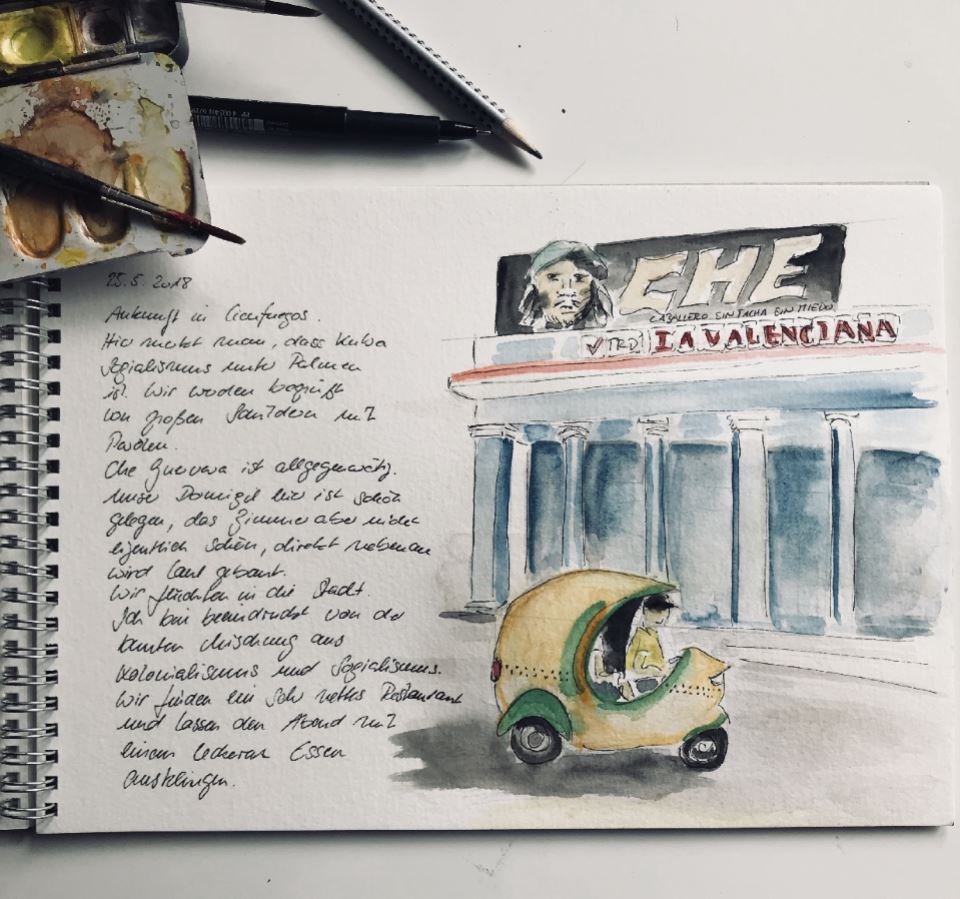 25.5.2018
Ankunft in Cienfuegos.
Hier merkt man, dass Kuba
Sozialismus unter Palmen
ist. Wir werden begrüßt
von großen Schildern mit
Parolen.
Che Guevara ist allgegenwärtig.
Unser Domizil hier ist schön
gelegen, das Zimmer aber nicht
eigentlich schön, direkt nebenan
wird laut gebaut.
Wir flüchten in die Stadt.
Ich bin beeindruckt von der
bunten Mischung aus
Kolonialismus und Sozialismus.
Wir finden ein sehr nettes Restaurant
und lassen den Abend mit
einem leckeren Essen
ausklingen.
CHE
CABALLERO SIN TACHA SIN MIEDO
TRD LA VALENCIANA